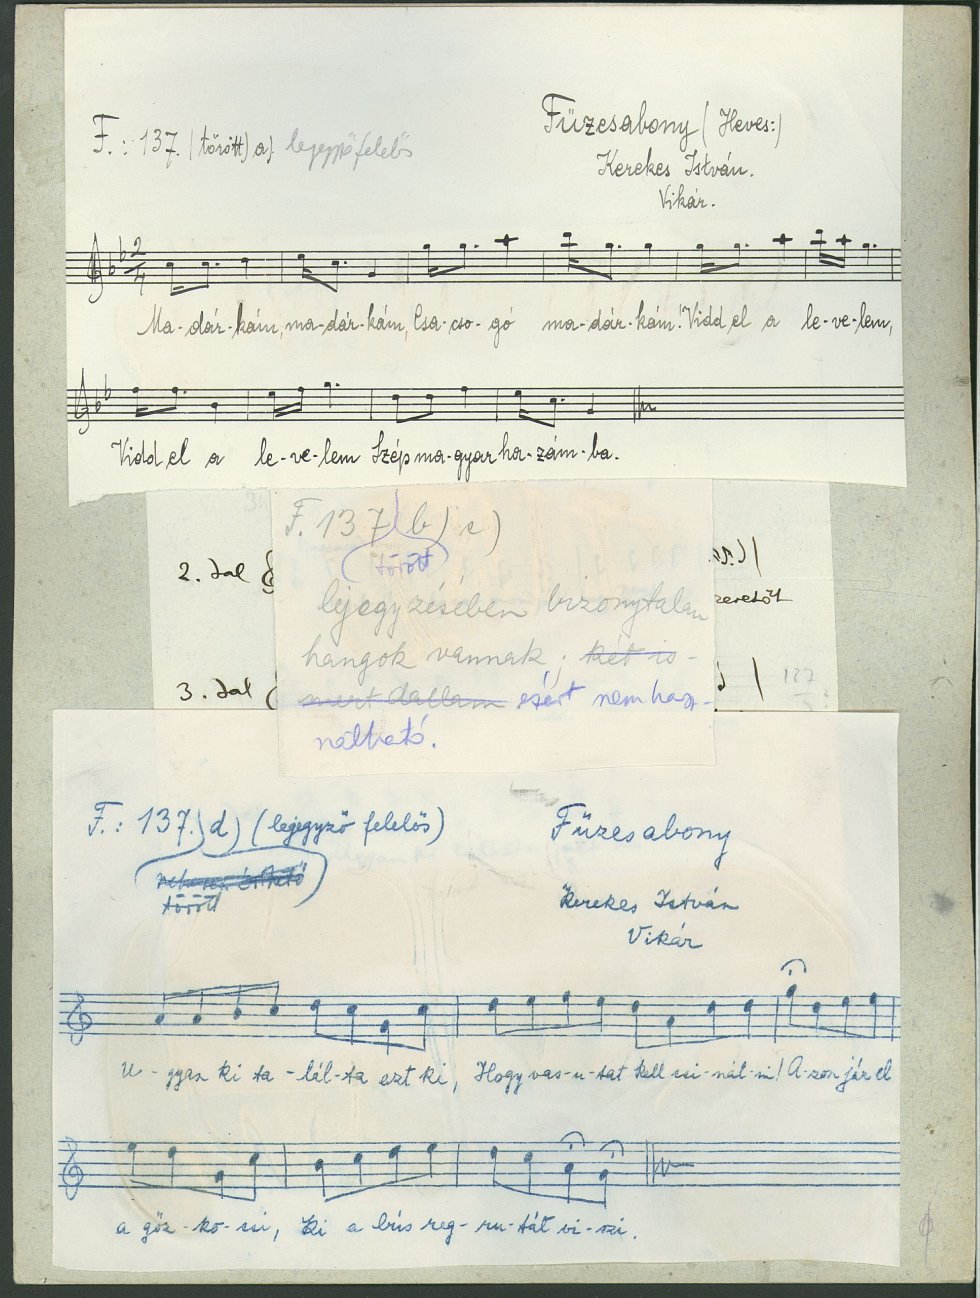 F.: 137. (törött) a) lejegyző felelős
Füzesabony (Heves:)
Kerekes István.
Vikár.
2
4
Ma-dár-kám, ma-dár-kám, Csa-cso-gó ma-dár-kám! Vidd el a le-ve-lem,
Vidd el a le-ve-lem Szép ma-gyar ha-zám-ba.
F. 137 b) c)
törött
lejegyzésében bizonytalan
hangok vannak; két is-
mert dallam ezért nem hasz-
nálható.
2. dal
zeretőt
3. dal
127
F.: 137. d) (lejegyző felelős)
törött
Füzesabony
Kerekes István
Vikár
U-gyan ki ta-lál-ta ezt ki, Hogy vas-u-tat kell csi-nál-ni! A-zon jár el
a gőz-ko-csi, Ki a bús reg-ru-tát vi-szi.